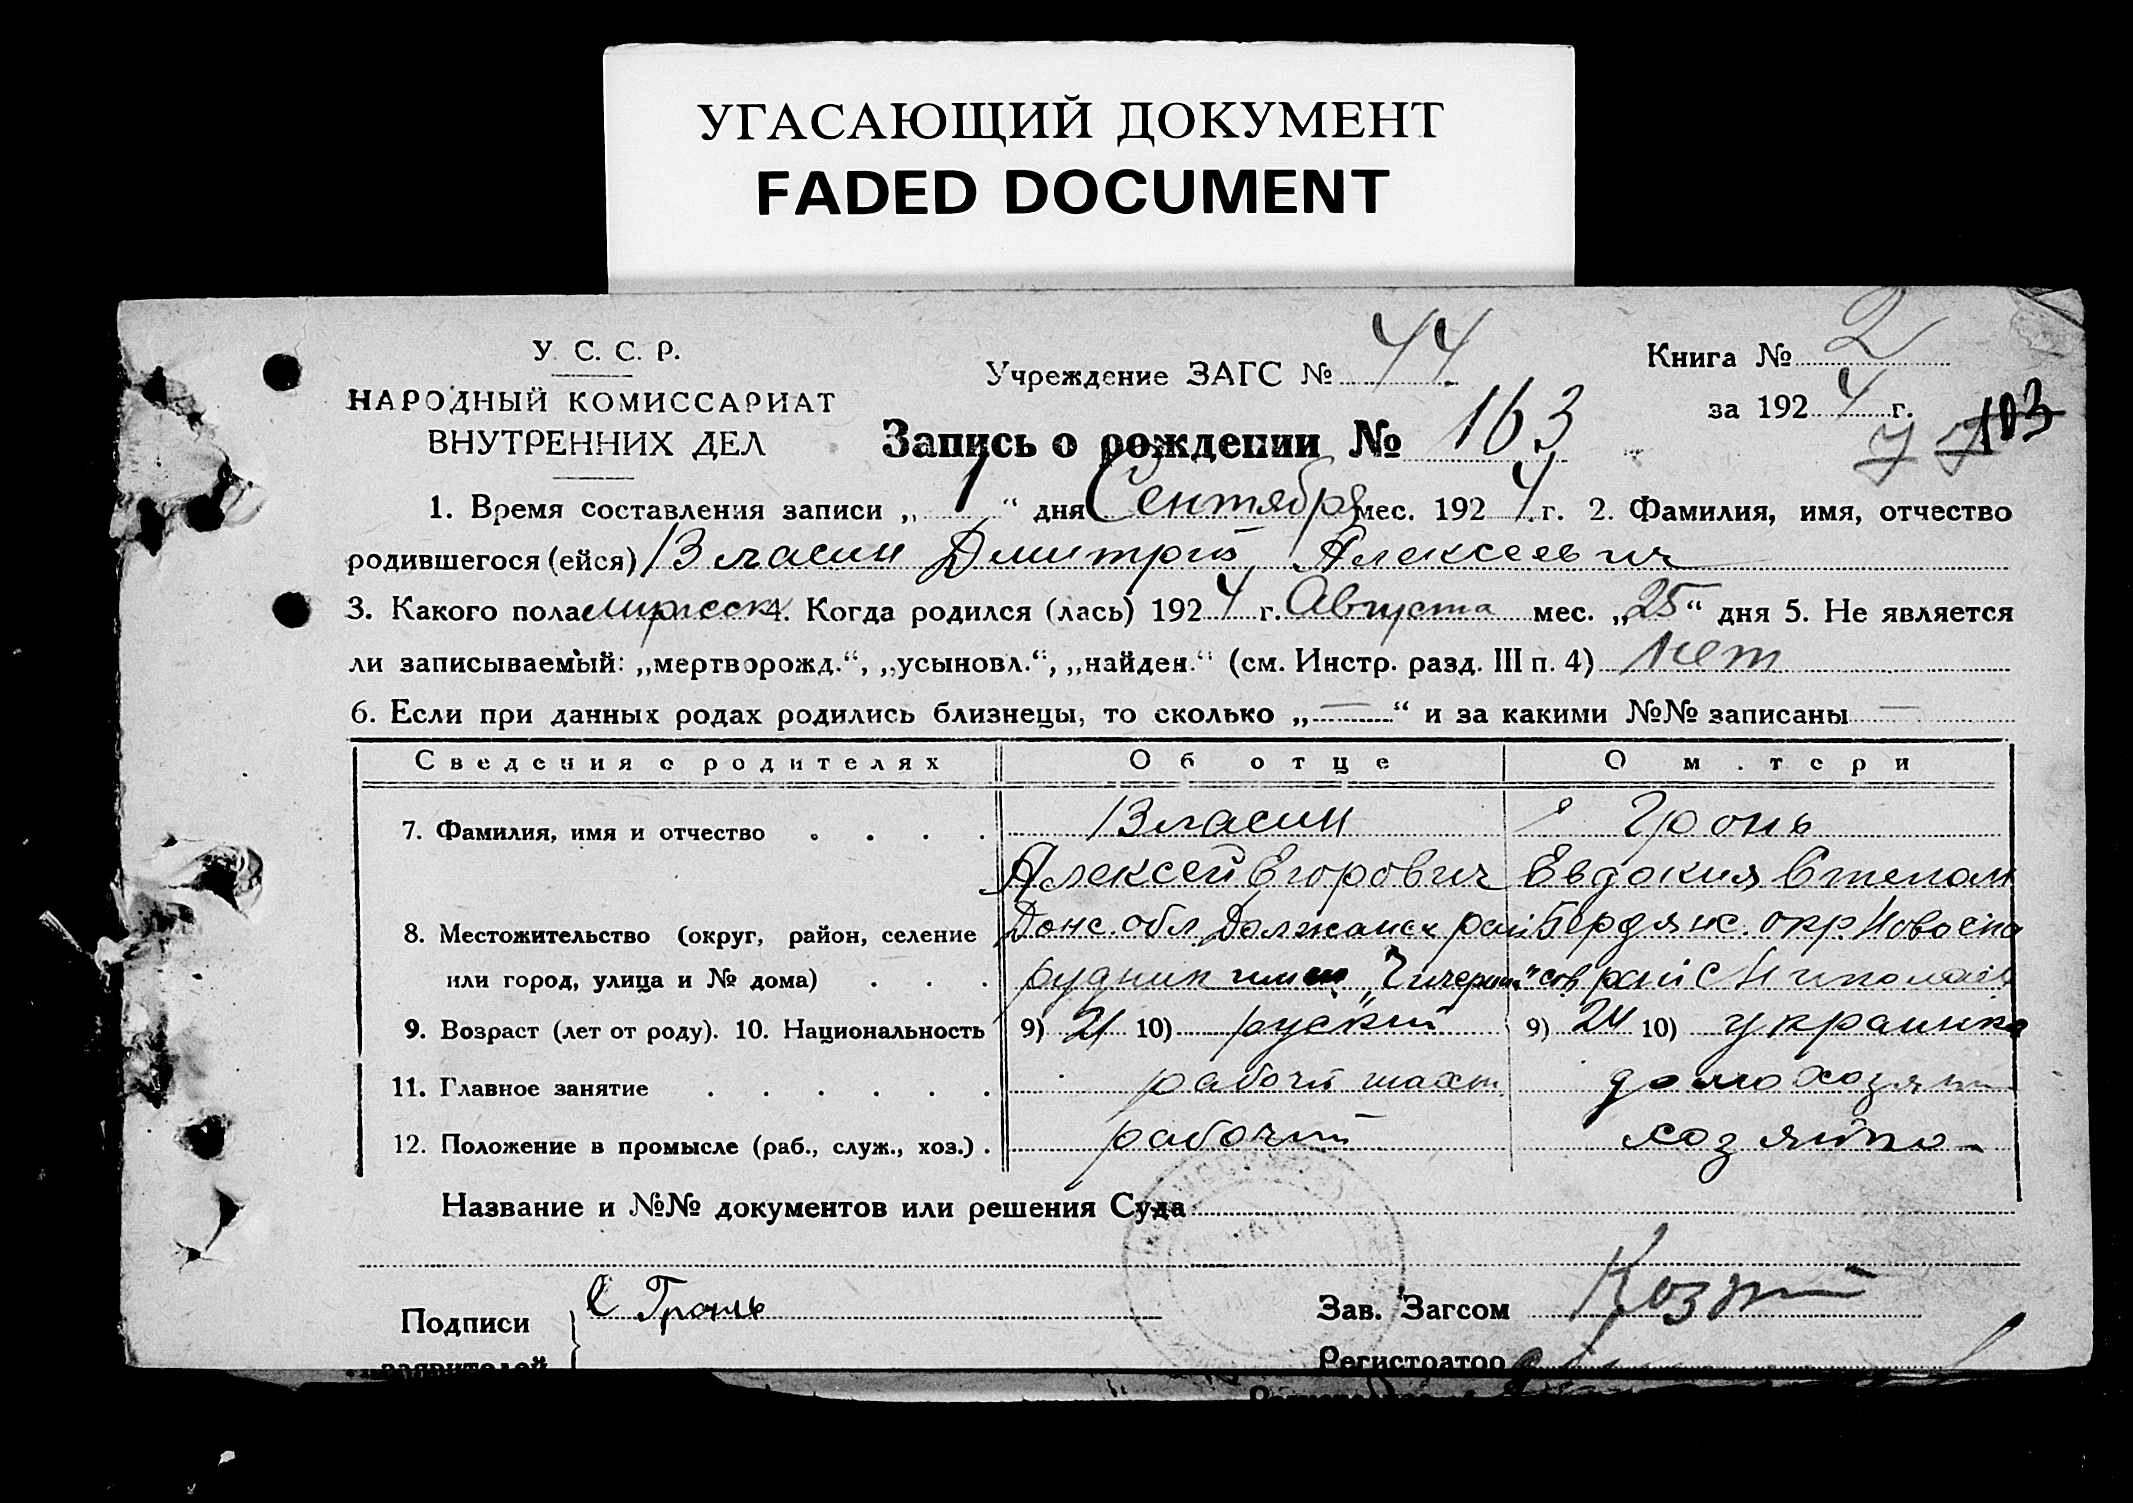 УГАСАЮЩИЙ ДОКУМЕНТ
FADED DOCUMENT
У. С. С. Р.
НАРОДНЫЙ КОМИССАРИАТ
ВНУТРЕННИХ ДЕЛ
Учреждение ЗАГС № 44
Книга № 2
за 1924 г.
103
Запись о рождении № 163
1. Время составления записи „ 1 “ дня Сентября мес. 1924 г. 2. Фамилия, имя, отчество
родившегося (ейся) Власин Дмитрий Алексеевич
3. Какого пола мужск 4. Когда родился (лась) 1924 г. Августа мес. „25“ дня 5. Не является
ли записываемый: „мертворожд.“, „усыновл.“, „найден.“ (см. Инстр. разд. III п. 4) нет
6. Если при данных родах родились близнецы, то сколько „ — “ и за какими №№ записаны —
Сведения о родителях Об отце О м.тери
7. Фамилия, имя и отчество . . . . Власин Гронь
Алексей Егорович Евдокия Степан
8. Местожительство (округ, район, селение Донс. обл. Должанск рай Бердянс. окр. Новоспа
или город, улица и № дома) . . . рудник имен „Чичерин“ сов рай с Николаев
9. Возраст (лет от роду). 10. Национальность 9) 21 10) руский 9) 24 10) украинка
11. Главное занятие . . . . . . рабочий шахт. домохозяй
12. Положение в промысле (раб., служ., хоз.) . рабочий хозяйка
Название и №№ документов или решения Суда
Подписи
заявителей
Е Гронь
Зав. Загсом
Регистратор